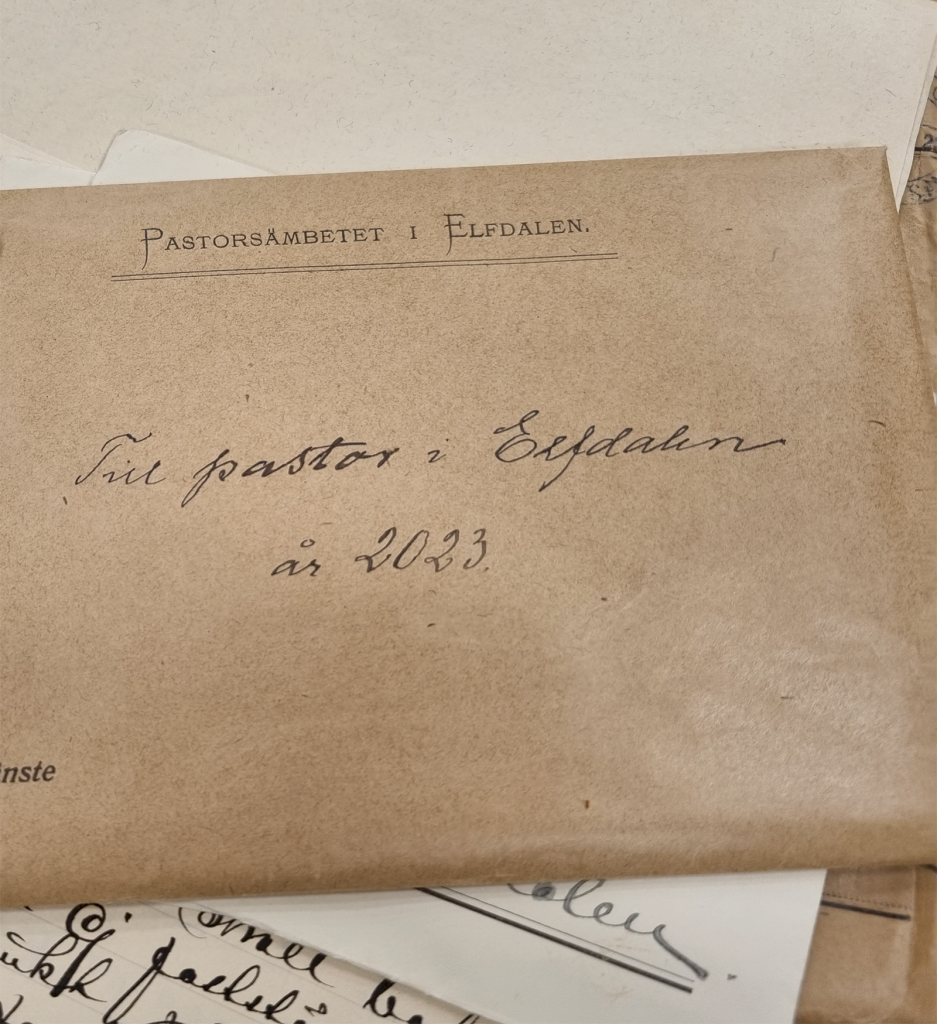 PASTORSÄMBETET I ELFDALEN.
Till pastor i Elfdalen
år 2023.
nste